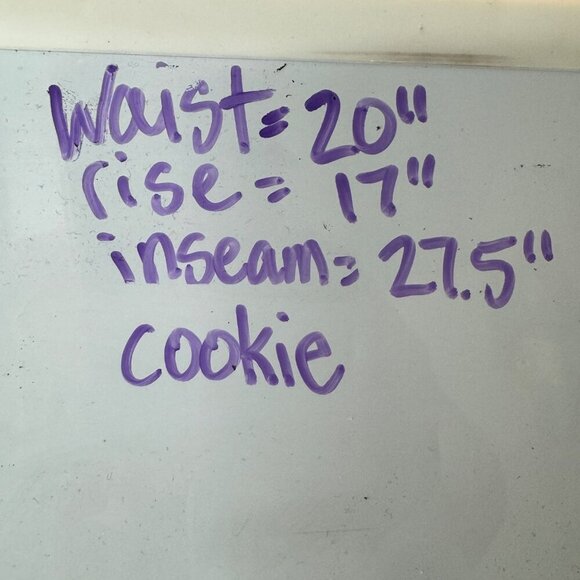 Waist = 20"
rise = 17"
inseam = 27.5"
cookie